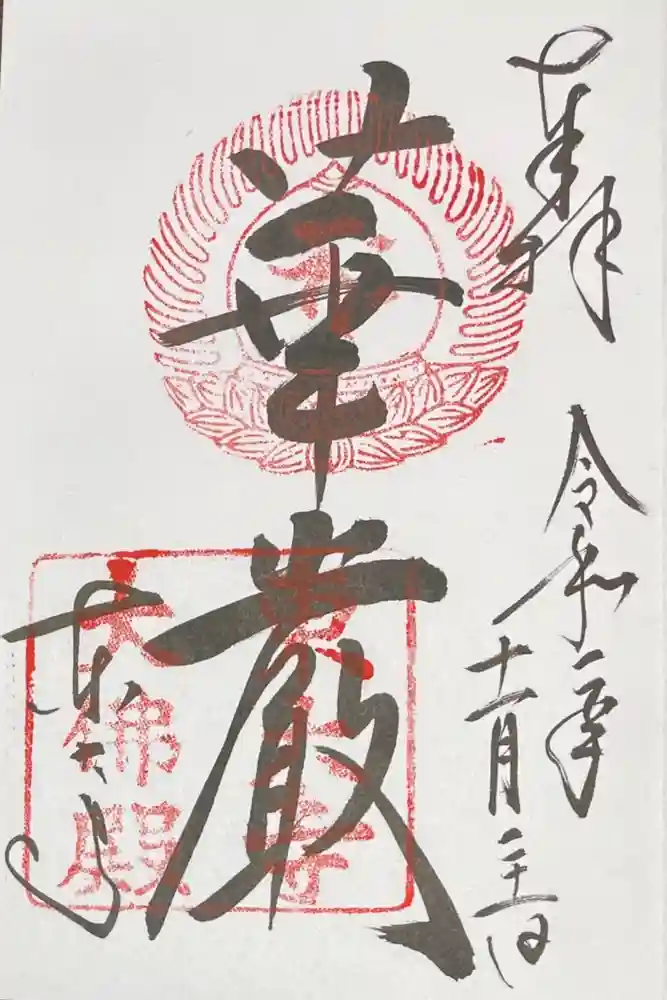 奉拝
令和二年
十一月二十日
華厳
東大寺
東大寺
大佛殿